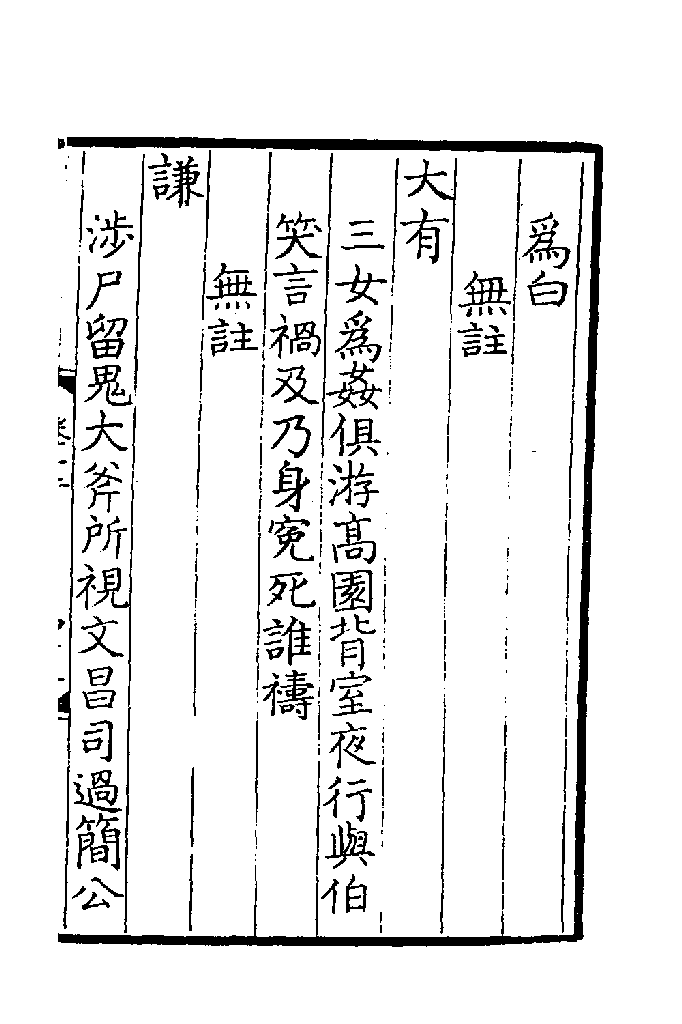 爲白
無註
大有
三女爲姦俱游髙園背室夜行與伯
笑言禍及乃身寃死誰禱
無註
謙
涉尸留鬼大斧所視文昌司過簡公